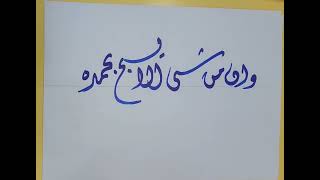 وان من شىء الا يسبح بحمده